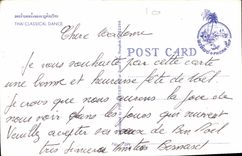 THAI CLASSICAL DANCE
POST CARD
Chère Madame
Je vous souhaite par cette carte
une bonne et heureuse fête de Noël
Je crois que nous aurons la joie de
nous voir dans les jours qui suivent
Veuillez accepter vos vœux de Bon Noël
très sincères Bernard